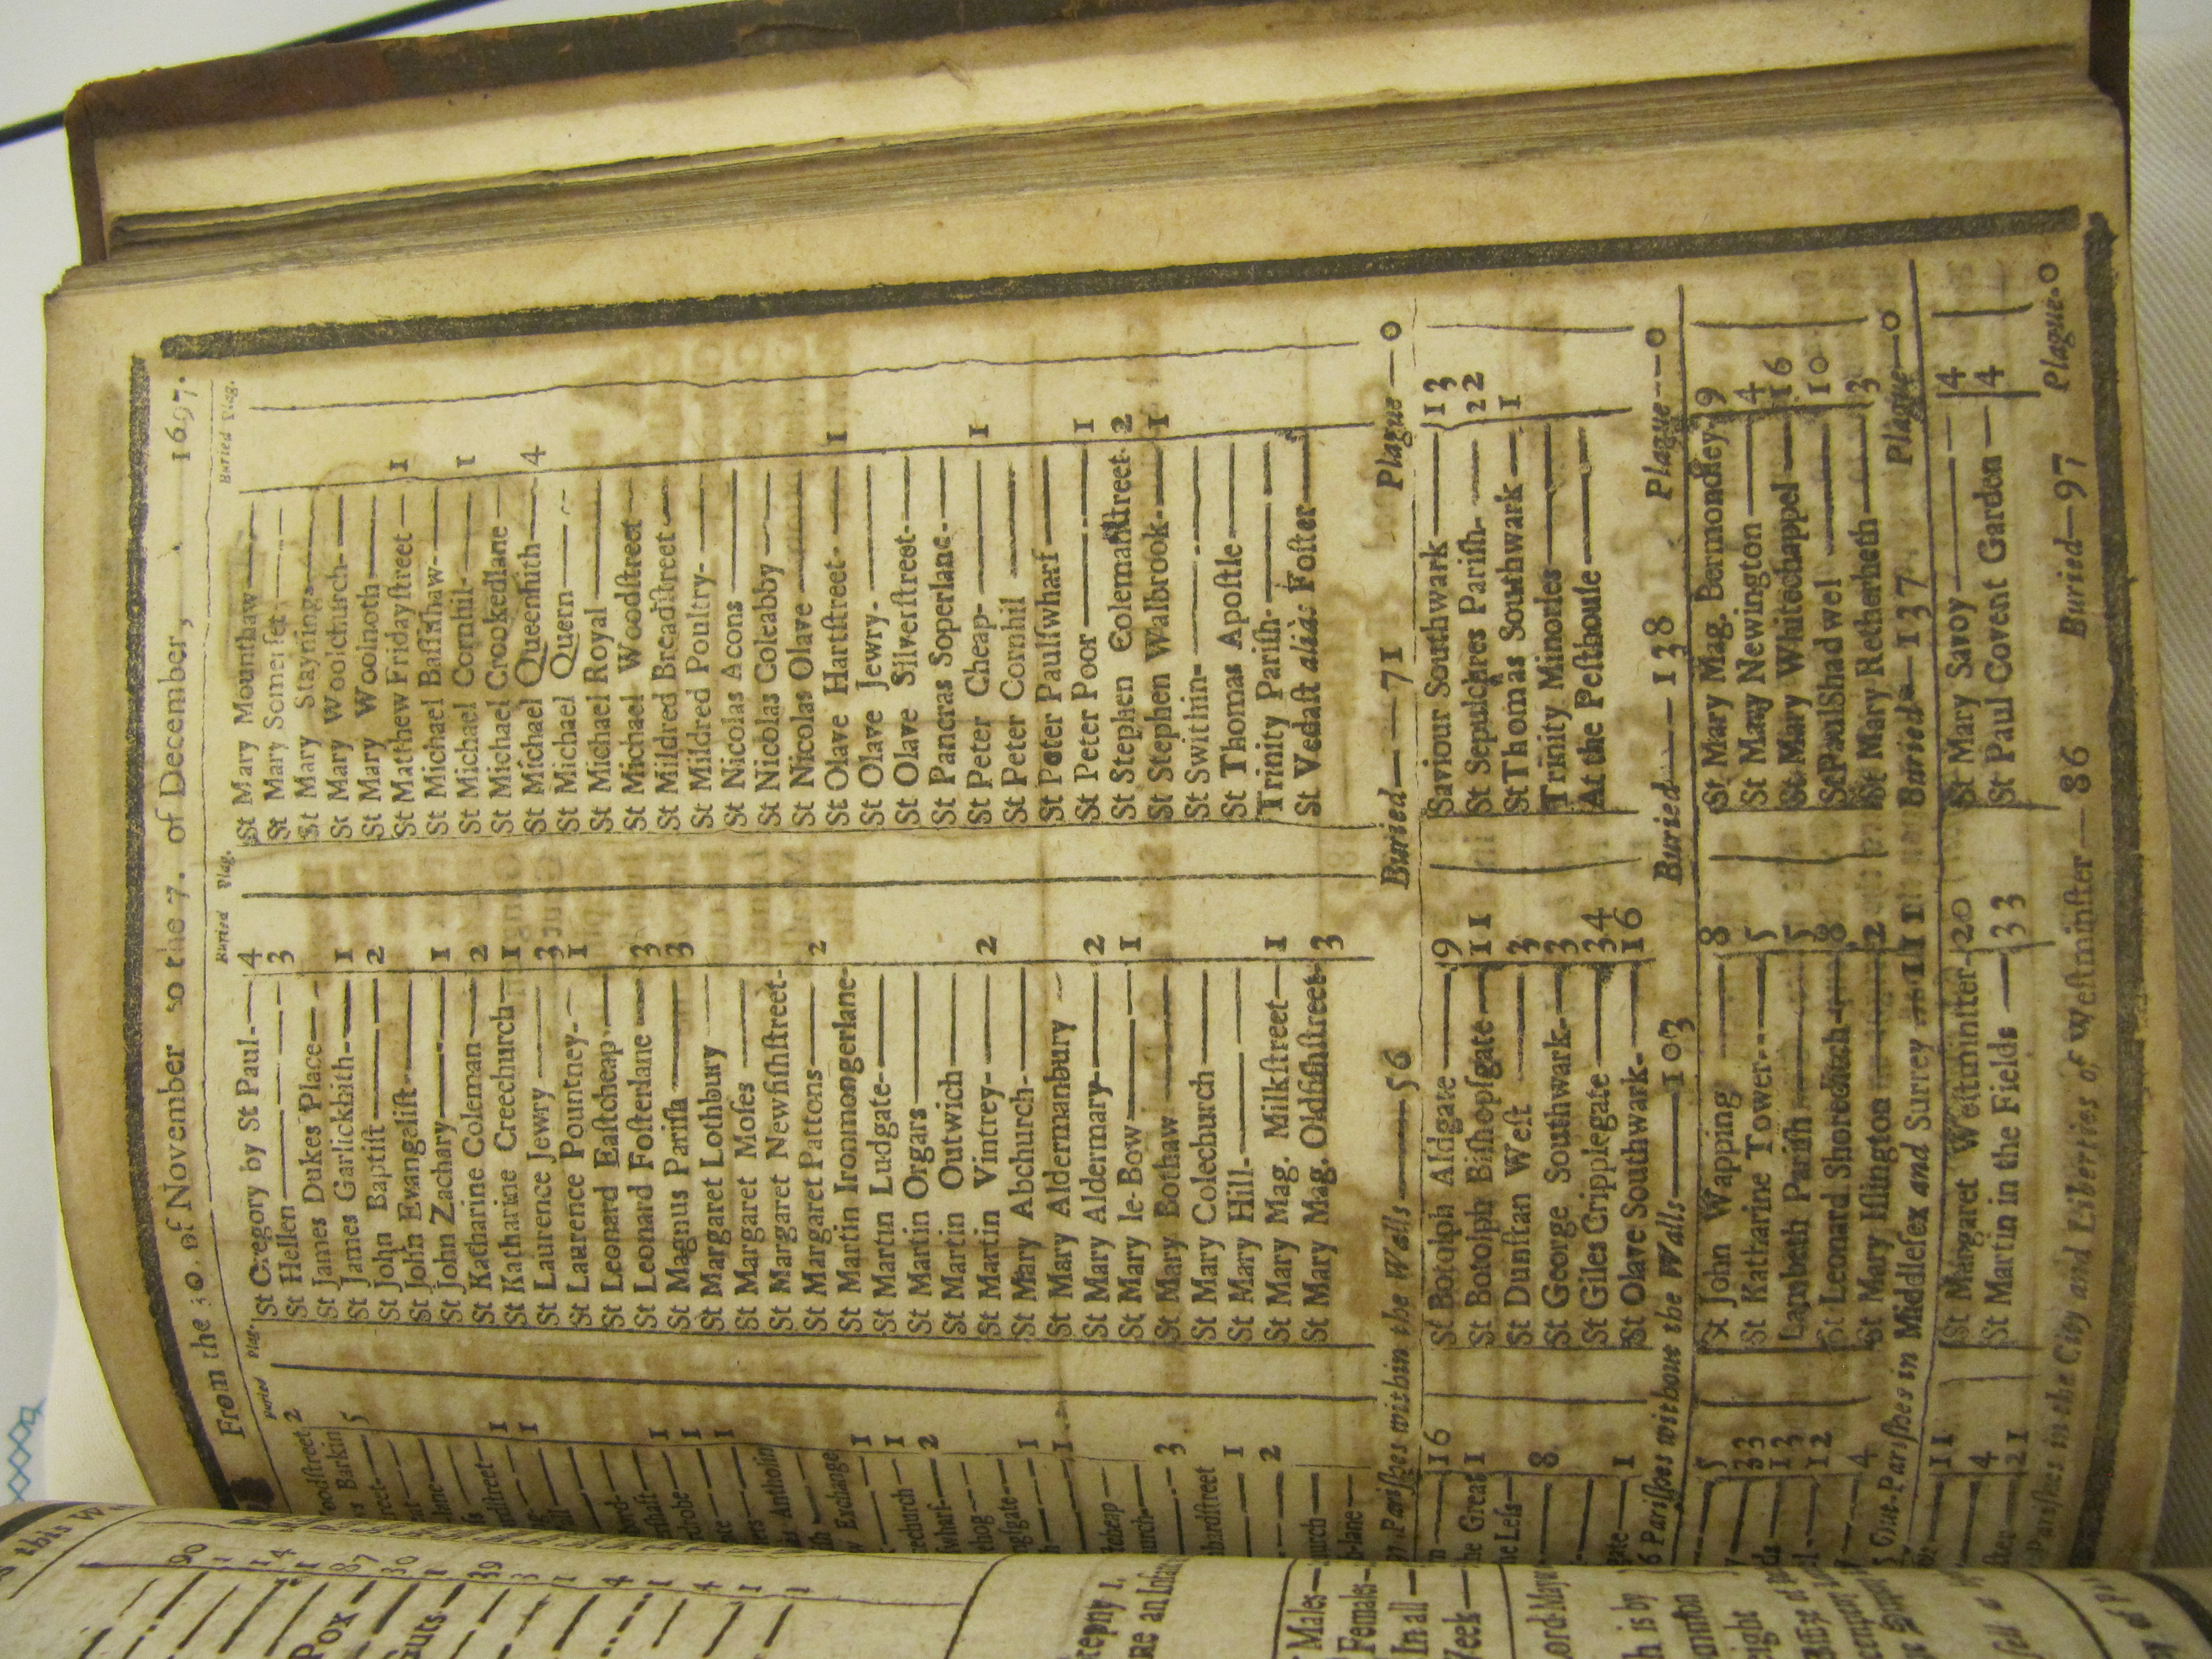 From the 30. of November to the 7. of December, 1697.
Buried Plag. Buried Plag. Buried Plag.
oodstreet, 2
s Barkin 5
reet
lane
rdstreet 1
1
rd
1
robe 1
1
s Antholin
Exchange
1
echurch 1
wharf 2
ehog
gsgate 1
1
tcheap
urch
3
hardstreet
1
2
urch
lane
St Gregory by St Paul 4
St Hellen 3
St James Dukes Place
St James Garlickhith 1
St John Baptist 2
St John Evangelist
St John Zachary 1
St Katharine Coleman 2
St Katharine Creechurch 1
St Laurence Jewry 3
St Laurence Pountney 1
St Leonard Eastcheap
St Leonard Fosterlane 3
St Magnus Parish 3
St Margaret Lothbury
St Margaret Moses
St Margaret Newfishstreet
St Margaret Pattons 2
St Martin Ironmongerlane
St Martin Ludgate
St Martin Orgars
St Martin Outwich
St Martin Vintrey 2
St Mary Abchurch
St Mary Aldermanbury
St Mary Aldermary 2
St Mary le Bow 1
St Mary Bothaw
St Mary Colechurch
St Mary Hill
St Mary Mag. Milkstreet 1
St Mary Mag. Oldfishstreet 3
St Mary Mounthaw
St Mary Somerset
St Mary Stayning
St Mary Woolchurch
St Mary Woolnoth
St Matthew Fridaystreet 1
St Michael Bassishaw
St Michael Cornhil 1
St Michael Crookedlane
St Michael Queenhith 4
St Michael Quern
St Michael Royal
St Michael Woodstreet
St Mildred Breadstreet
St Mildred Poultry
St Nicolas Acons
St Nicolas Coleabby
St Nicolas Olave
St Olave Hartstreet 1
St Olave Jewry
St Olave Silverstreet
St Pancras Soperlane
St Peter Cheap 1
St Peter Cornhil
St Peter Paulswharf
St Peter Poor 1
St Stephen Colemanstreet 2
St Stephen Walbrook 1
St Swithin
St Thomas Apostle
Trinity Parish
St Vedast aliàs Foster
Parishes within the Walls 56 Buried 71 Plague 0
16
he Great 1
he Less
8
gate 1
St Botolph Aldgate 9
St Botolph Bishopsgate 11
St Dunstan West 3
St George Southwark 3
St Giles Cripplegate 34
St Olave Southwark 16
Saviour Southwark 13
St Sepulchres Parish 22
St Thomas Southwark 1
Trinity Minories
At the Pesthouse
16 Parishes without the Walls 103 Buried 138 Plague 0
5
33
13
12
4
St John Wapping 8
St Katharine Tower 5
Lambeth Parish 5
St Leonard Shoreditch 8
St Mary Islington 2
St Mary Mag. Bermondsey 9
St Mary Newington 4
St Mary Whitechappel 16
St Paul Shadwel 10
St Mary Retherheth 3
15 Out-Parishes in Middlesex and Surrey 111 Buried 137 Plague 0
11
4
21
St Margaret Westminster 20
St Martin in the Fields 33
St Mary Savoy 4
St Paul Covent Garden 4
Parishes in the City and Liberties of Westminster 86 Buried 97 Plague 0
this W
90
1
14
1
Pox 87
30
1
uts 39
3
1
4
1
4
1
1
Males
Females
In all
Week
Lord Mayor
h is by
eight